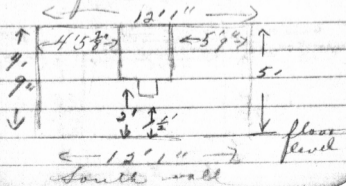 12'1"
4'5 3/8" 5'9"
4'
9" 5'
2' 1/2'
floor
level
12'1"
South wall